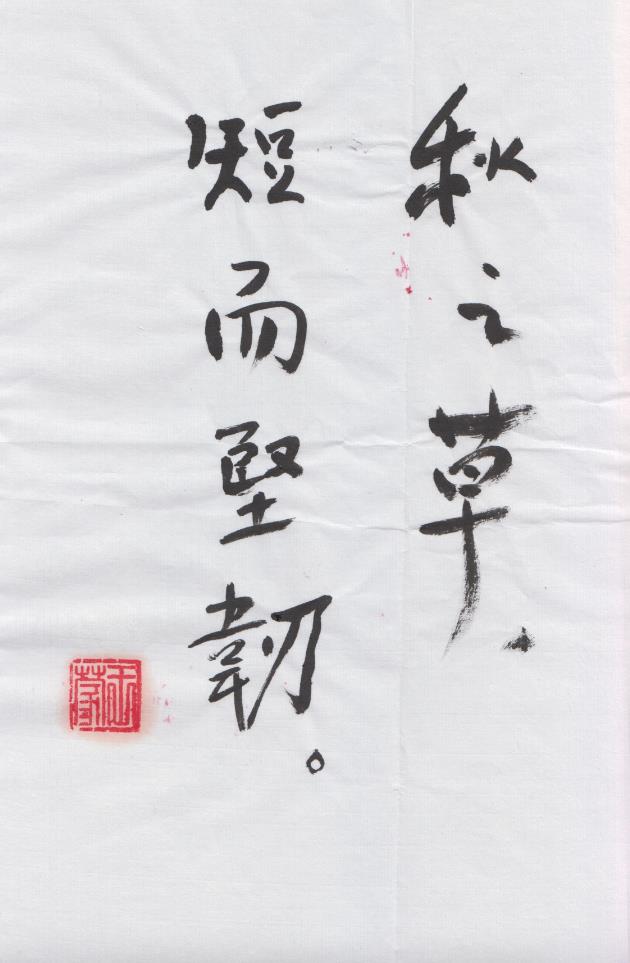 秋之草，
短而堅韌。